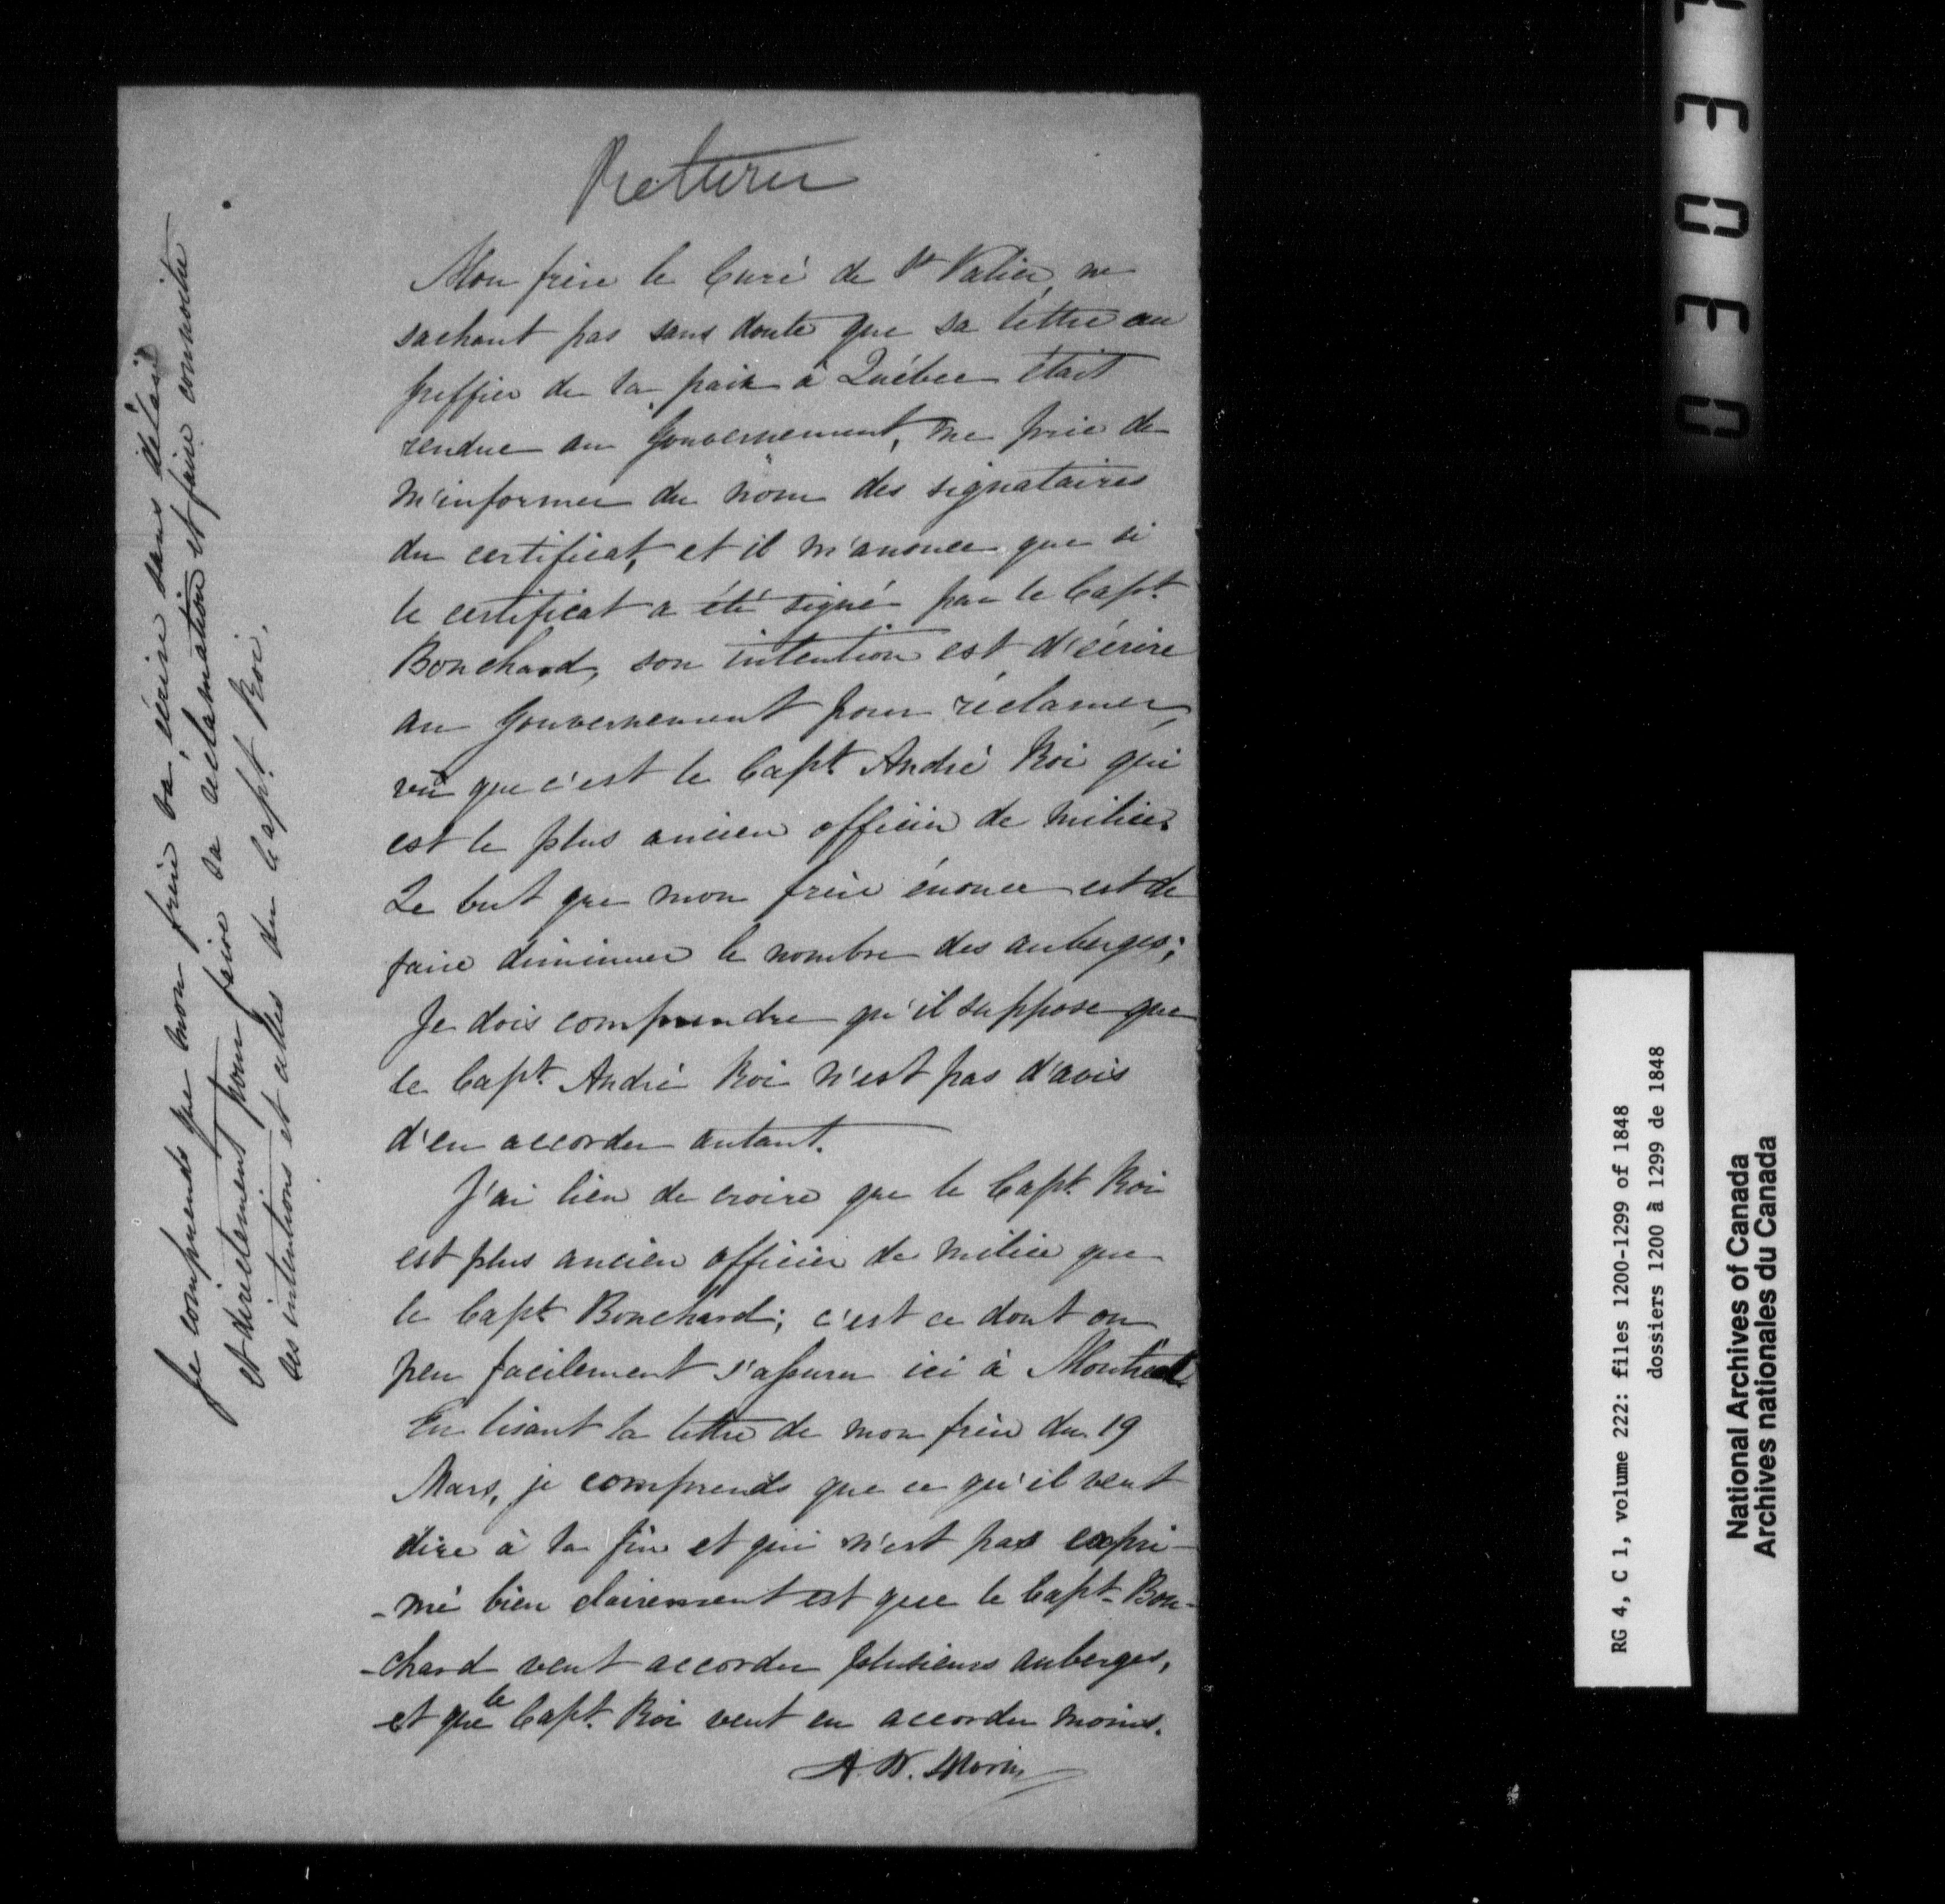 Return
Mon frère le Curé de St Valier, ne
sachant pas sans doute que sa lettre au
Greffier de la paix à Québec était
rendue au Gouvernement, me prie de
m'informer du nom des signataires
du certificat, et il m'anonce que si
le certificat a été signé par le Capt.
Bouchard, son intention est d'écrire
au Gouvernement pour réclamer,
vû que c'est le Capt. André Roi qui
est le plus ancien officier de milice.
Le but que mon frère énonce est de
faire diminuer le nombre des auberges;
Je dois comprendre qu'il suppose que
le Capt. André Roi n'est pas d'avis
d'en accorder autant.
J'ai lieu de croire que le Capt. Roi
est plus ancien officier de milice que
le Capt. Bouchard; c'est ce dont on
peu facilement s'assurer ici à Montréal.
En lisant la lettre de mon frère du 19
Mars, je comprends que ce qu'il veut
dire à la fin et qui n'est pas expri-
-mé bien clairement est que le Capt. Bou-
-chard veut accorder plusieurs auberges,
et que le Capt. Roi veut en accorder moins.
A. N. Morin
Je comprends que mon frère va écrire sans délai
et directement pour faire sa réclamation et faire connoitre
ses intentions et celles du Capt. Roi.
RG 4, C 1, volume 222: files 1200-1299 of 1848
dossiers 1200 à 1299 de 1848
National Archives of Canada
Archives nationales du Canada